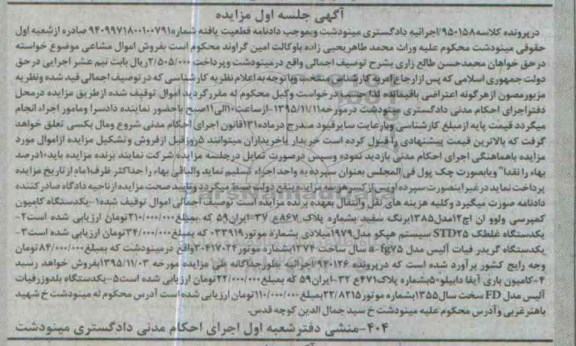 آگهی جلسه اول مزایده
درپرونده کلاسه۹۵۰۱۵۸ اجرائیه دادگستری مینودشت وبموجب دادنامه قطعیت یافته شماره۹۴۰۹۹۷۱۸۰۰۱۰۰۷۹۱ صادره ازشعبه اول
حقوقی مینودشت محکوم علیه وراث محمد طاهریحیی زاده باوکالت امین گراوند محکوم است بفروش اموال مشاعی موضوع خواسته
درحق خواهان محمدحسن طالع زاری بشرح توصیف اجمالی واقع درمینودشت وپرداخت۲/۵۰۵/۰۰۰ریال بابت نیم عشر اجرایی درحق
دولت جمهوری اسلامی که پس ازارجاع امربه کارشناس منتخب وباتوجه به اعلام نظریه کارشناسی که در توصیف اجمالی قید شده ونظریه
مزبورمصون ازهرگونه اعتراضی باقیمانده لذا حسب درخواست وکیل محکوم له مقررگردید اموال توقیف شده ازطریق مزایده درمحل
دفتراجرای احکام مدنی دادگستری مینودشت درمورخه۱۳۹۵/۱۱/۱۱ازساعت۱۰الی۱۱صبح باحضور نماینده دادسرا ومامور اجراء انجام
میگردد قیمت پایه ازمبلغ کارشناسی وبارعایت سایرقیود مندرج درماده۱۳۱قانون اجرای احکام مدنی شروع ومال بکسی تعلق خواهد
گرفت که بالاترین قیمت پیشنهادی را قبول کرده است خریدار یاخریداران میتوانند ۵روزقبل ازفروش و تشکیل مزایده ازاموال مورد
مزایده باهماهنگی اجرای احکام مدنی بازدید نموده وسپس درصورت تمایل درجلسه مزایده شرکت نمایند برنده مزایده باید۱۰درصد
بهاء را نقدا" وبابصورت چک پول فی المجلس بعنوان سپرده به واحد اجراء تسلیم نماید والباقی بهاء را حداکثر ظرف۱ماه ازتاریخ مزایده
پرداخت نماید درغیراینصورت سپرده اوپس ازکسرهزینه مزایده بنفع دولت ضبط میگردد وتایید صحت مزایده ازناحیه دادگاه صادرکننده
دادنامه صورت میگیرد وکلیه هزینه های نقل وانتقال بعهده برنده مزایده است توصیف اجمالی اموال توقیف شده۱-یکدستگاه کامیون
کمپرسی ولوو ان اچ۱۲مدل۱۳۸۵برنگ سفید بشماره پلاک ۸۶۷ع ۳۷-ایران۵۹ که بمبلغ۲۱۰/۰۰۰/۰۰۰تومان ارزیابی شده است۲-
یکدستگاه غلطک STD۲۵ سیستم هپکو مدل۱۹۷۹میلادی بشماره موتور۰۳۳۹۱۹ که بمبلغ۳۴/۰۰۰/۰۰۰تومان ارزیابی شده است۳-
یکدستگاه گریدر فیات آلیس مدل fg۷۵-a سال ساخت ۱۳۷۴ شماره موتور ۳۰۴۱۷۰۲۴واقع درمینودشت که بمبلغ۸۴/۰۰۰/۰۰۰تومان
وجه رایج کشور برآورد شده است که درپرونده ۹۴۰۱۲۶ اجرائیه بطورجداگانه طی مزایده مورخه ۱۳۹۵/۱۱/۰۳ بفروش خواهد رسید
۴-کامیون باری آیفا دابلیو۵۰بشماره پلاک۴۷۱ع ۳۲-ایران۵۹ که بمبلغ۲۲/۰۰۰/۰۰۰تومان ارزیابی شده است۵-یکدستگاه بلدوزرفیات
آلیس مدل FD سخت سال۱۳۵۵بشماره موتور ۲۲/۸۲۱۵بمبلغ۱۱۰/۰۰۰/۰۰۰تومان ارزیابی شده است آدرس محکوم له مینودشت خ شهید
باهنر غربی وآدرس محکوم علیه مینودشت خ سید جمال الدین کوچه قدس.
۴۰۴-منشی دفترشعبه اول اجرای احکام مدنی دادگستری مینودشت